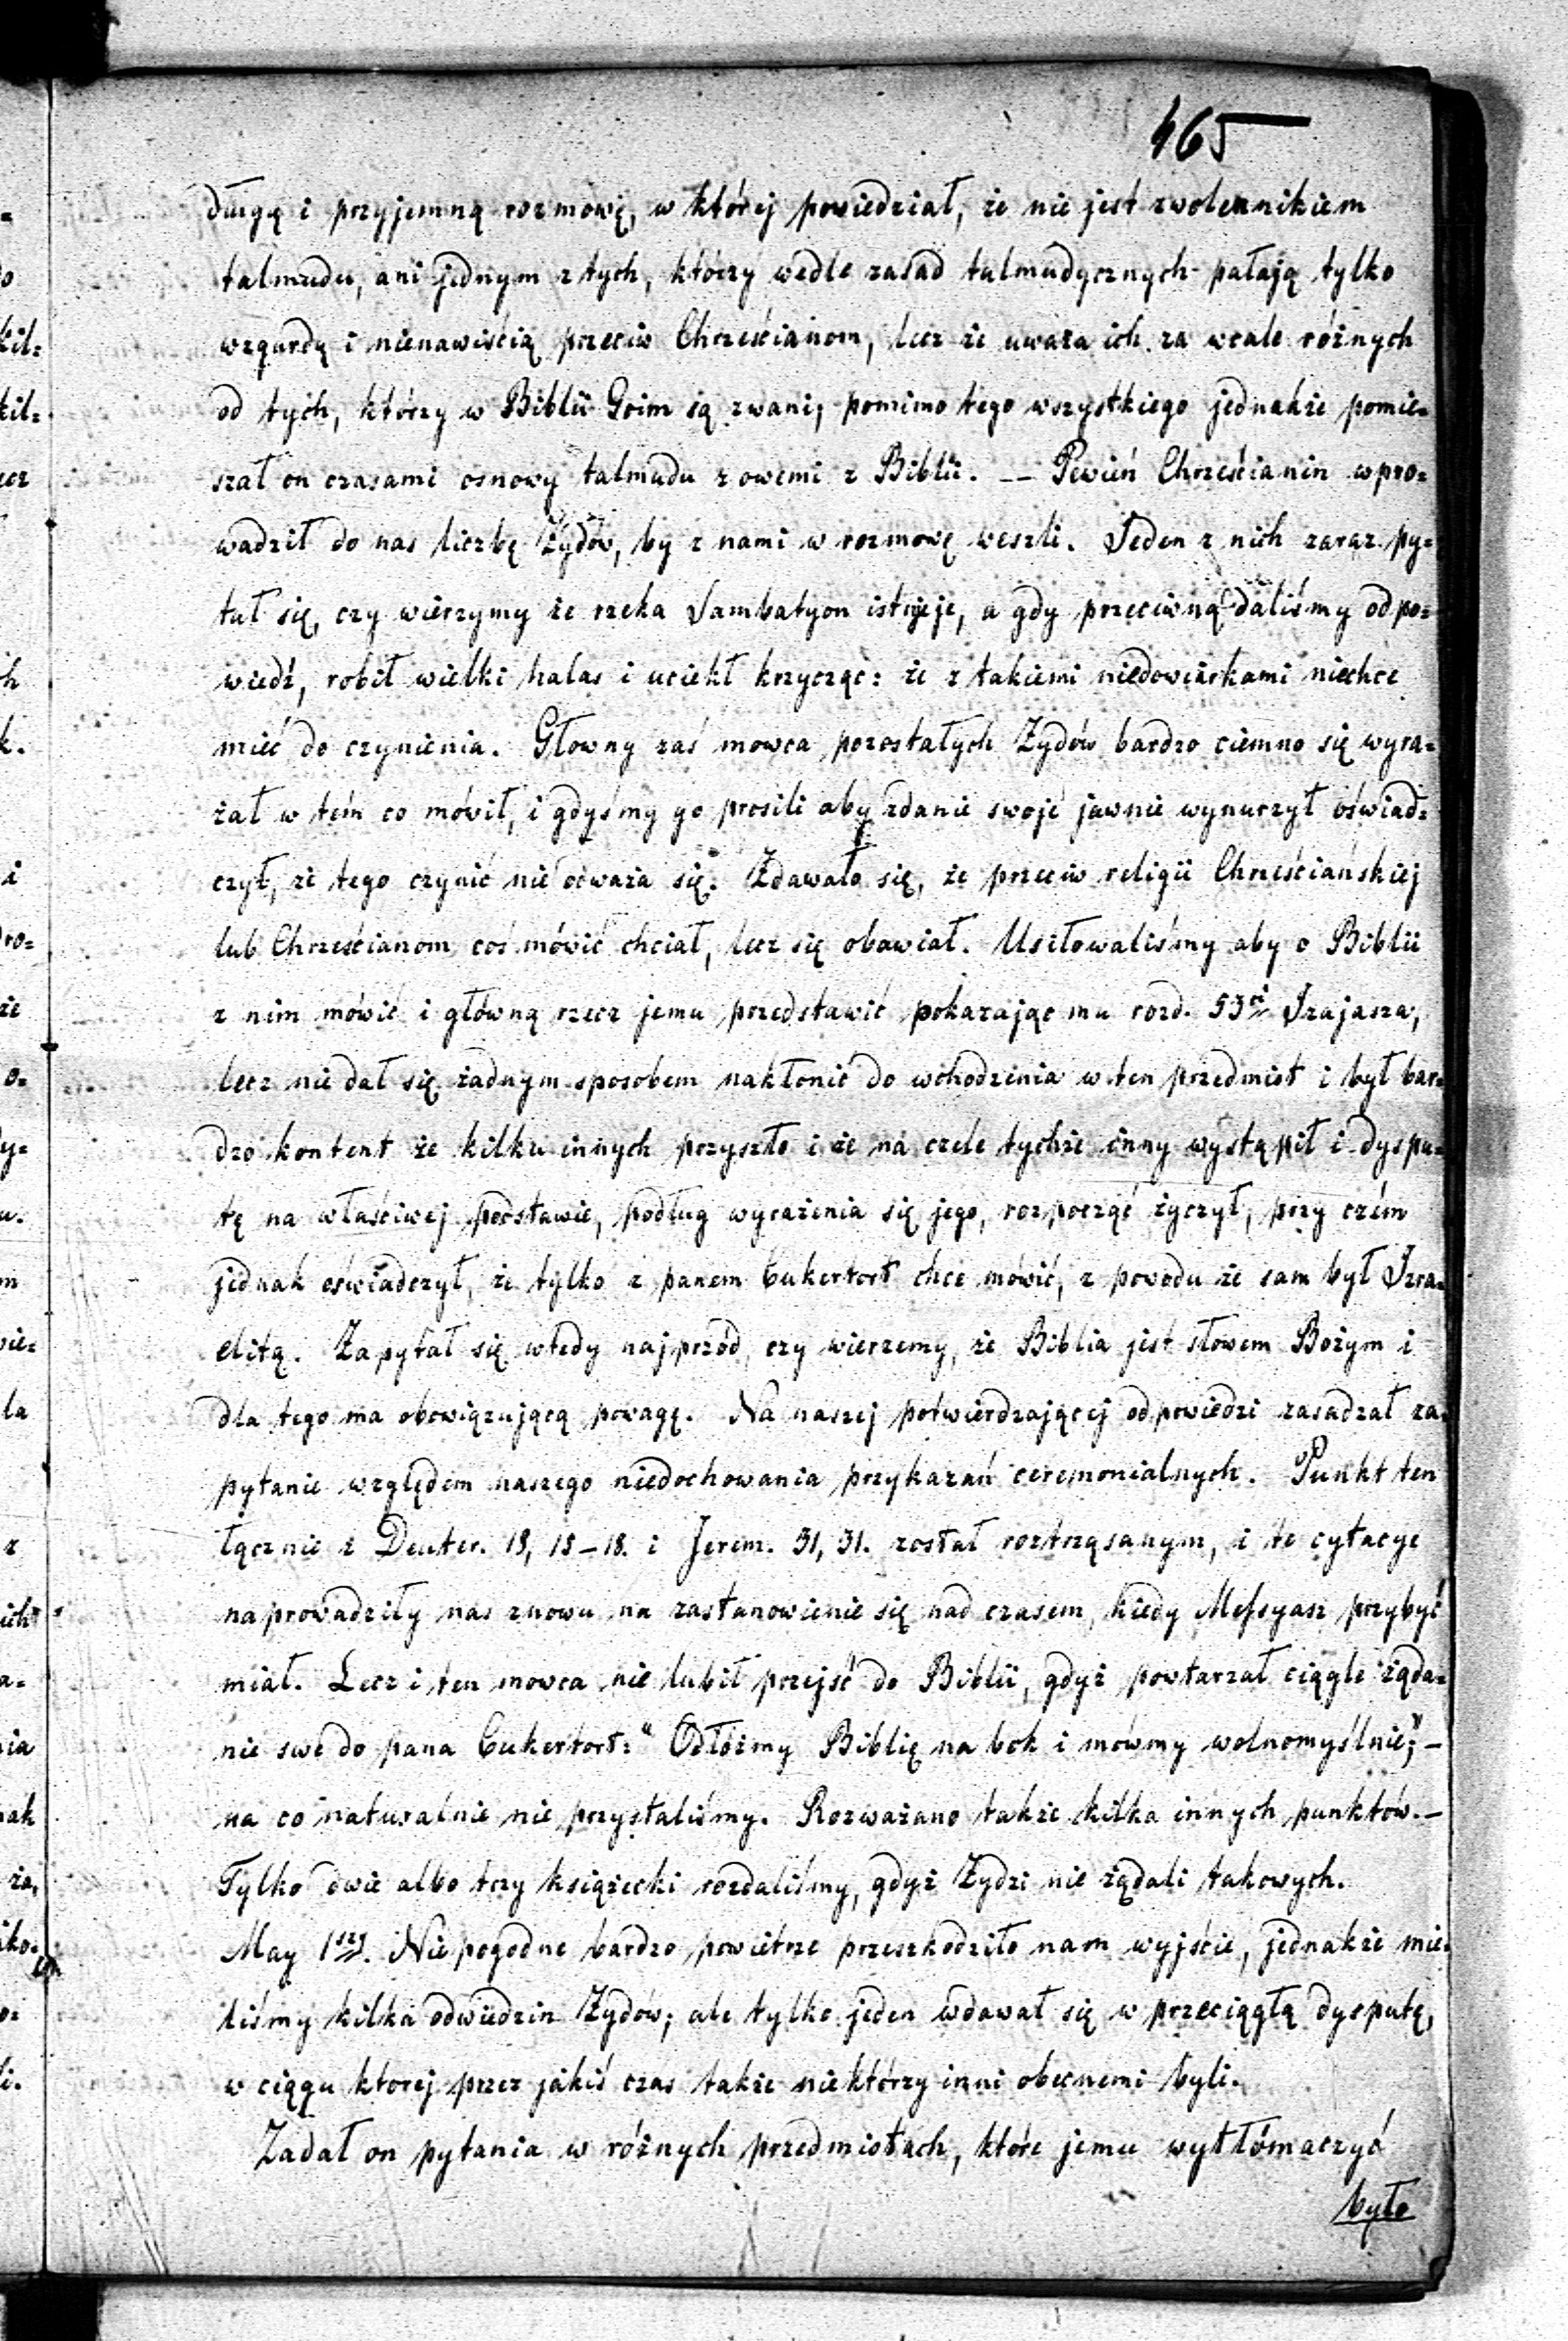 465
długą i przyjemną rozmowę, w której powiedział, że nie jest zwolennikiem
talmudu, ani jednym z tych, którzy wedle zasad talmudycznych pałają tylko
wzgardą i nienawiścią przeciw Chrześcianom, lecz że uważa ich za wcale różnych
od tych, którzy w Biblii Goim są zwani; pomimo tego wszystkiego jednakże pomie=
szał on czasami osnowy talmudu z owemi z Biblii. -- Pewień Chrześcianin wpro=
wadził do nas liczbę Żydów, by z nami w rozmowę weszli. Jeden z nich zaraz py=
tał się, czy wierzymy że rzeka Sambatyon istnieje, a gdy przeciwną daliśmy odpo=
wiedź, robił wielki halas i uciekł krzycząc: że z takiemi niedowiarkami niechce
mieć do czynienia. Głowny zaś mowca pozostałych Żydów bardzo ciemno się wyra=
żał w tém co mówił, i gdyśmy go prosili aby zdanie swoje jawnie wynurzył oświad=
czył, że tego czynić nie odważa się. Zdawało się, że przeciw religii Chrześciańskiej
lub Chrześcianom coś mówić chciał, lecz się obawiał. Usiłowaliśmy aby o Biblii
z nim mówić i główną rzecz jemu przedstawić pokazając mu rozd. 53ci Izajasza,
lecz nie dał się żadnym sposobem nakłonić do wchodzenia w ten przedmiot i był bar=
dzo kontent że kilku innych przyszło i że na czele tychże inny wystąpił i dyspu=
tę na właściwej podstawie, podług wyrażenia się jego, rozpocząć życzył, przy czém
jednak oświadczył, że tylko z panem Cukertort chce mówić, z powodu że sam był Izra=
elitą. Zapytał się wtedy najprzód, czy wierzemy, że Biblia jest słowem Bożym i
dla tego ma obowiązującą powagę. Na naszej potwierdzającej odpowiedzi zasadzał za=
pytanie względem naszego niedochowania przykazań ceremonialnych. Punkt ten
łącznie z Deuter. 18, 15-18. i Jerem. 31, 31. został roztrząsanym, i te cytacye
naprowadziły nas znowu na zastanowienie się nad czasem, kiedy Messyasz przybyć
miał. Lecz i ten mowca nie lubił przejść do Biblii, gdyż powtarzał ciągle żąda=
nie swe do pana Cukertort: "Odłóżmy Biblię na bok i mówmy wolnomyślnie"; -
na co naturalnie nie przystaliśmy. Rozważano także kilka innych punktów. -
Tylko dwie albo trzy książecki rozdaliśmy, gdyż Żydzi nie żądali takowych.
May 1szy. Nie pogodne bardzo powietrze przeszkodziło nam wyjście, jednakże mie=
liśmy kilka odwiedzin Żydów; ale tylko jeden wdawał się w przeciągłą dysputę,
w ciągu ktorej przez jakiś czas także niektórzy inni obecnemi byli.
Zadał on pytania w różnych przedmiotach, które jemu wytłómaczyć
było